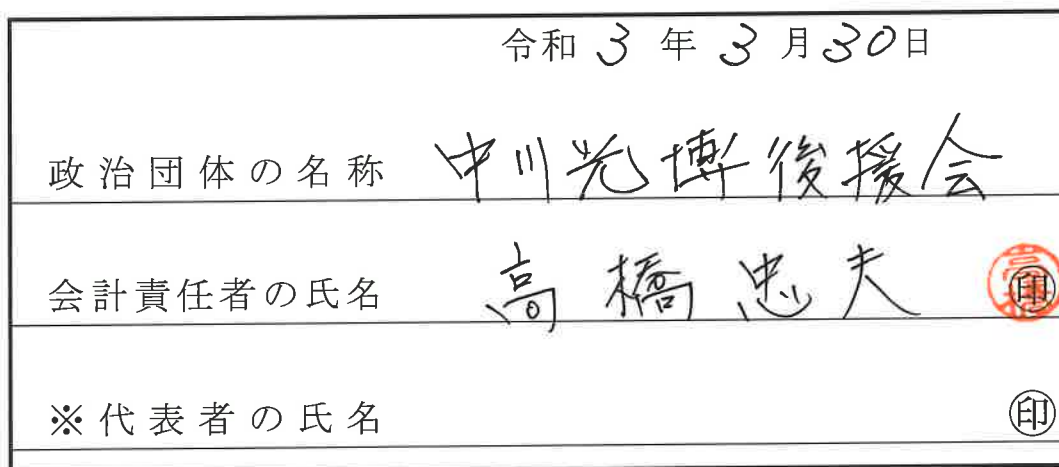 令和3年3月30日
政治団体の名称 中川光博後援会
会計責任者の氏名 高橋忠夫 ㊞
※代表者の氏名 ㊞